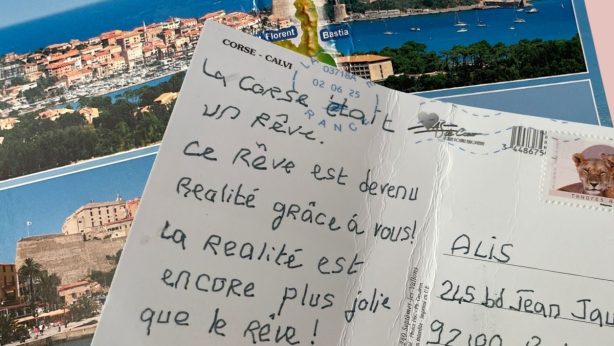 Florent
Bastia
CORSE - CALVI
03718A
02 06 25
FRANCE
La Corse était
un rêve.
Ce rêve est devenu
Realité grâce à vous!
La Realité est
encore plus jolie
que le rêve !
ALIS
245 bd Jean Jau
92100